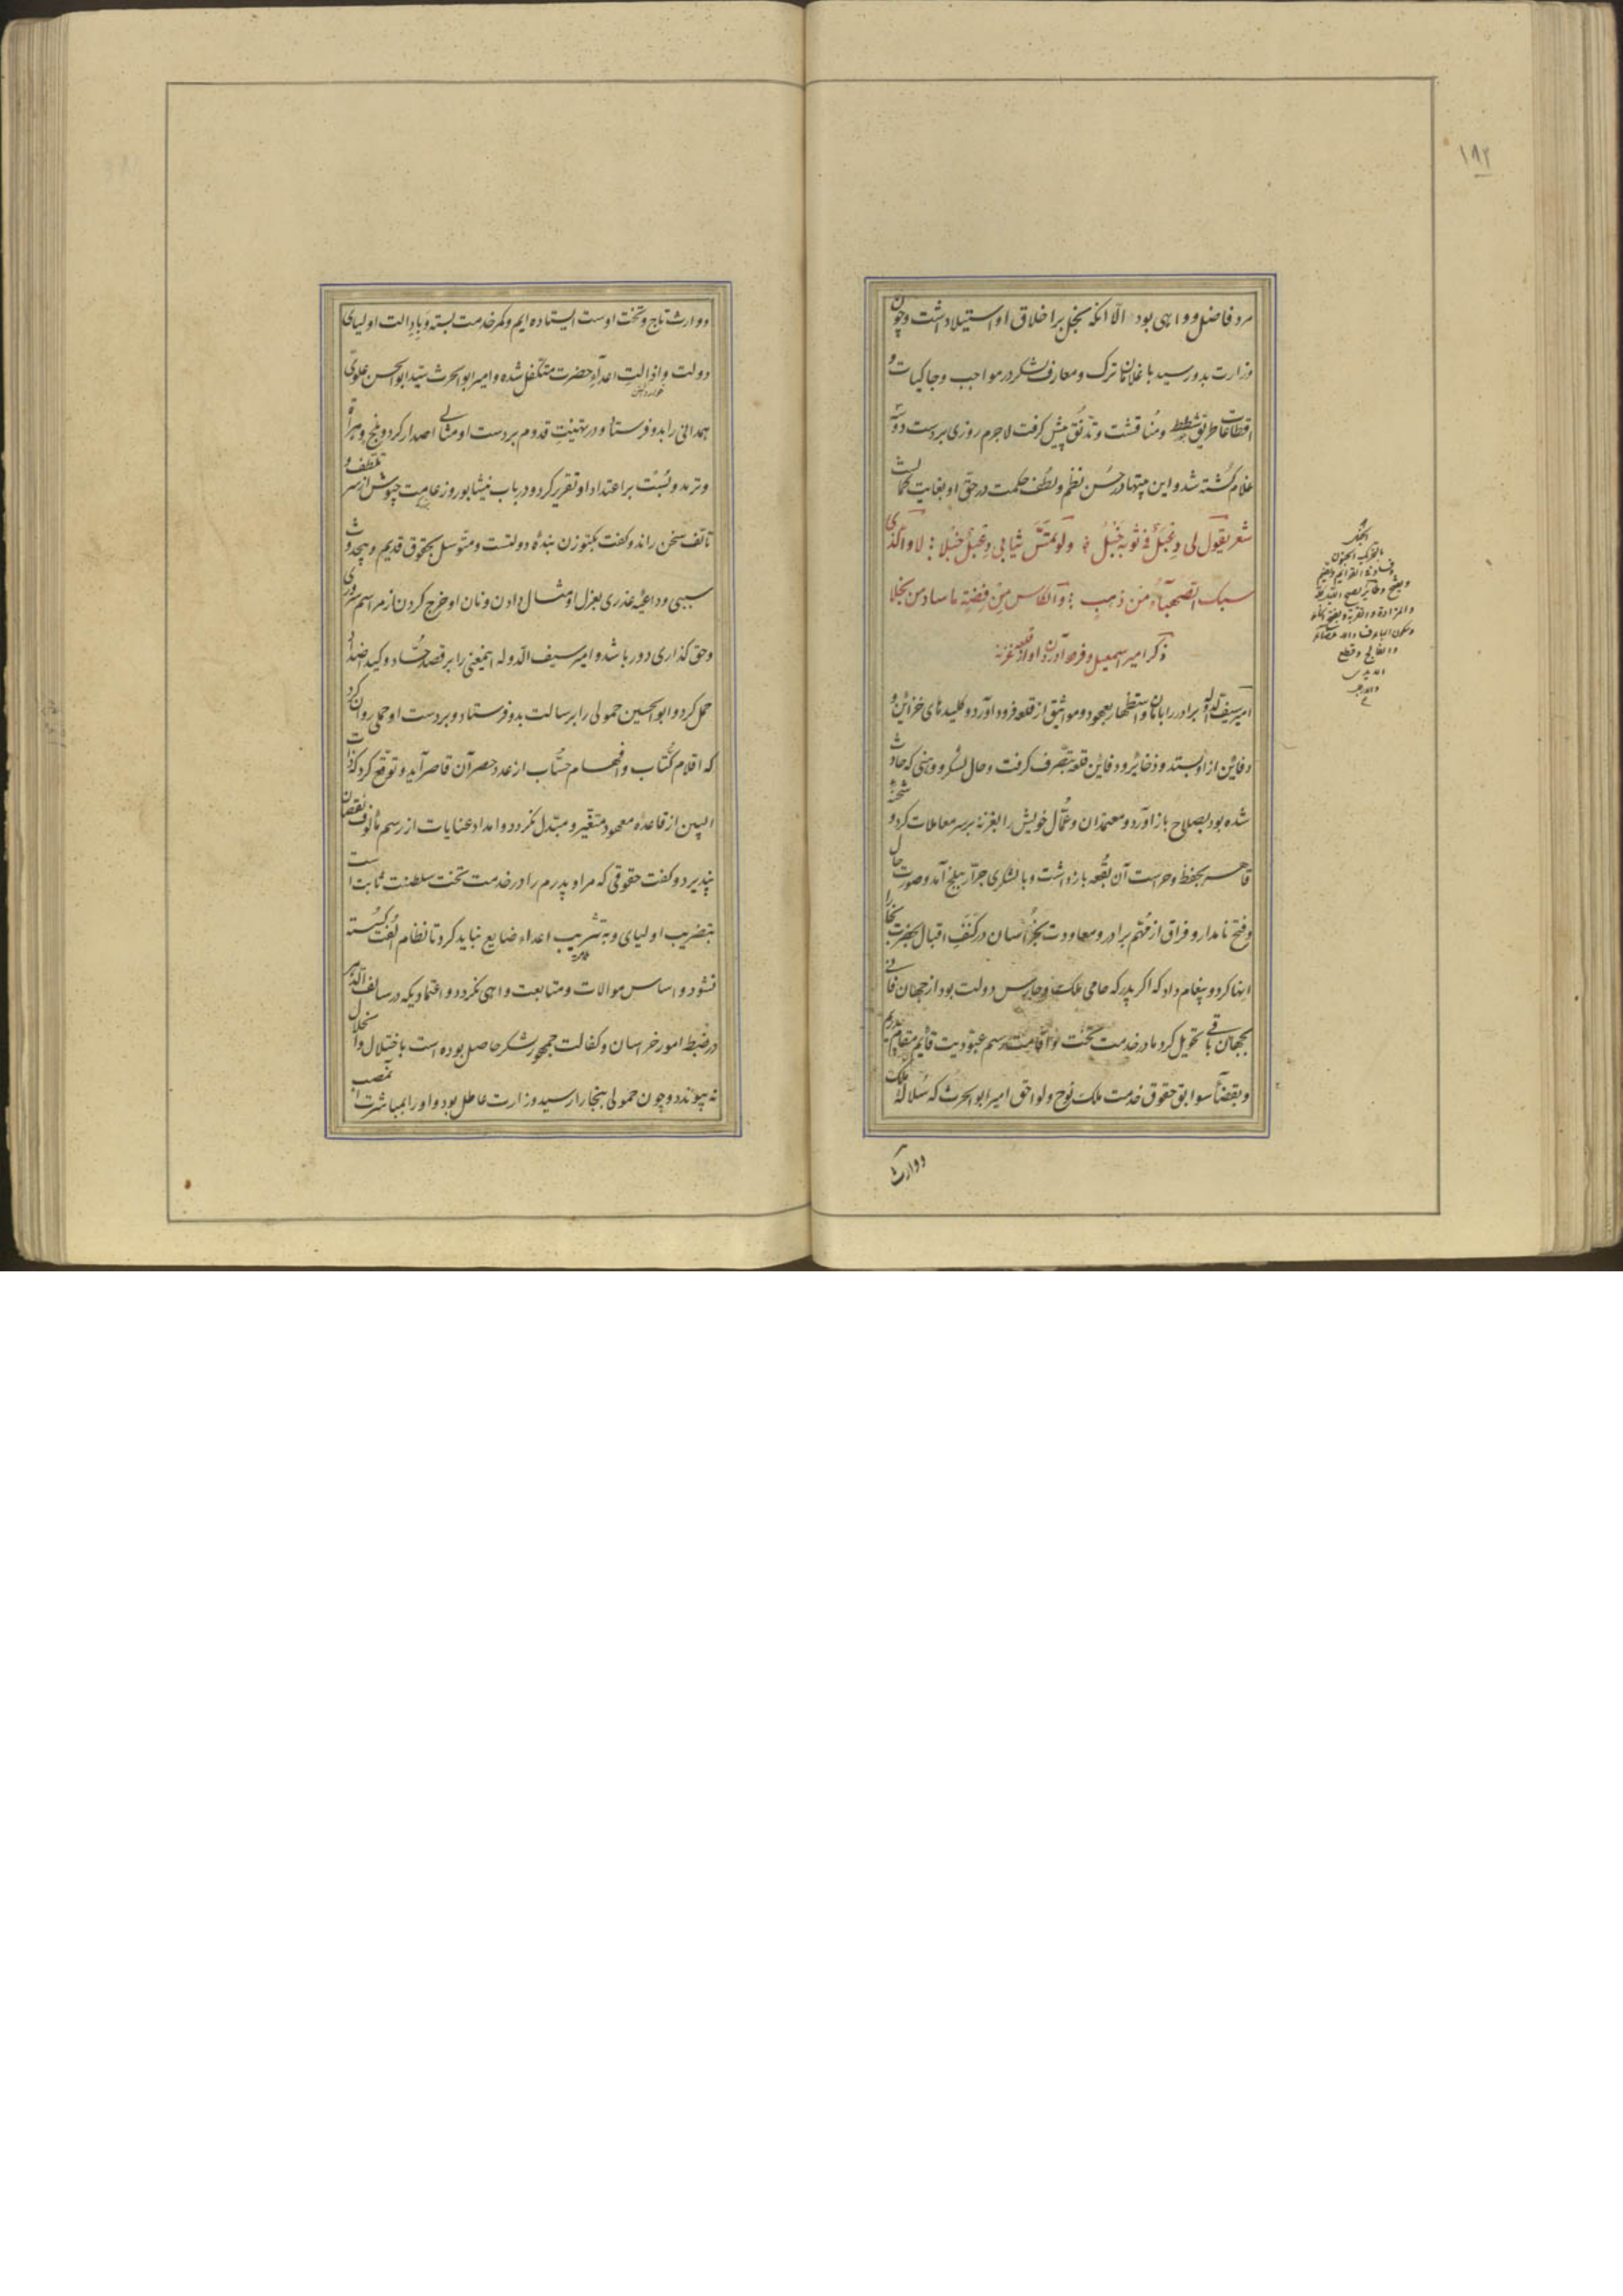 ۱۹۲
مرد فاضل و داهی بود الّا انکه بخل بر اخلاق او استیلا داشت و چون
وزارت بدو رسید با غلامان ترک و معارف لشکر در مواجب و جاکیات و
اقطاعات طریق شطط و مُناقشت و تدنّق پیش کرفت لاجرم روزی بر دست دو سه
غلام کُشته شد و این بیتها در حُسن نظم و لطف حکمت در حق او بغایت
شعر یقول لی دعبل فی ثوبه خبل ولو تمسّ ثیابی دعبل خبلا لا والذی
سبک الصهباء من ذهب والکاس من فضة ما ساد من بخلا
ذکر امیر اسمعیل و فرود آوردن او از قلعه غزنه
امیر سیف الدوله برادر را بامان و استظهار بعهود و مواثیق از قلعه فرود آورد و کلیدهای خزائن و
دفاین از او بستد و ذخائر و دفاین قلعه بتصرف کرفت و حال لشکر و وهنی که حادث
شده بود بصلاح باز آورد و معتمدان و عُمّال خویش را بغزنه بر سر معاملات کرد و شحنهٔ
قاهر بحفظ و حراست آن بُقعه بازداشت و با لشکری جرّار ببلخ آمد و صورت حال
و فتح نامدار و فراق از مُهّم برادر و معاودت بخُراسان در کنَفِ اقبال بحضرت بخارا
انها کرد و پیغام داد که اکر پدر که حامی ملک و حارس دولت بود از جهان فانی
بجهان باقی تحویل کرد ما در خدمت تخت تو اقامت رسم عبودیت قائم مقام پدریم
و بقضآء سوابق حقوق خدمت ملک نوح و لواحق امیر ابوالحرث که سُلاله ملک
و وارث
و وارث تاج و تخت اوست ایستاده ایم و کمر خدمت بسته و بادالت اولیای
دولت و اذالت اعداء حضرت متکفل شده و امیر ابوالحرث سیّد ابوالحسن علوی
همدانی را بدو فرستاد و در تهنیتِ قدوم بر دست او مثالی اصدار کرد و بلخ و هراة
و ترمد و بُست بر اعتداد او تقریر کرد و در باب نیشابور و زعامت جیوش از سر تلطف و
تألف سخن راند و کفت بکتوزن بندهٔ دولتست و متوسل بحقوق قدیم و بیحدوث
سببی و داعیهٔ عذری بعزل او مثال دادن و نان او خرج کردن از مراسم سروری
و حق کذاری دور باشد و امیر سیف الدّوله اینمعنی را بر قصد حُسّاد و کید اضداد
حمل کرد و ابوالحسین حمولی را برسالت بدو فرستاد و بر دست او حملی روان کرد
که اقلام کُتّاب و افهام حسّاب از عدد حصر آن قاصر آید و توقع کرد که ذات
البین از قاعدهٔ معهود متغیّر و مبتدل نکردد و امداد عنایات از رسم مألوف نقصان
نپذیرد و کفت حقوقی که مرا و پدرم را در خدمت تخت سلطنت ثابت است
بتضریب اولیای و به تشریب اعداء ضایع نباید کرد تا نظام اُلفت کسسته
نشود و اساس موالات و متابعت واهی نکردد و اعتمادیکه در سالف الدّهر
در ضبط امور خراسان و کفالت جمهور لشکر حاصل بوده است باختلال و انحلال
نه پیوندد و چون حمولی ببخارا رسید وزارت عاطل بود و او را بمباشرت آن منصب